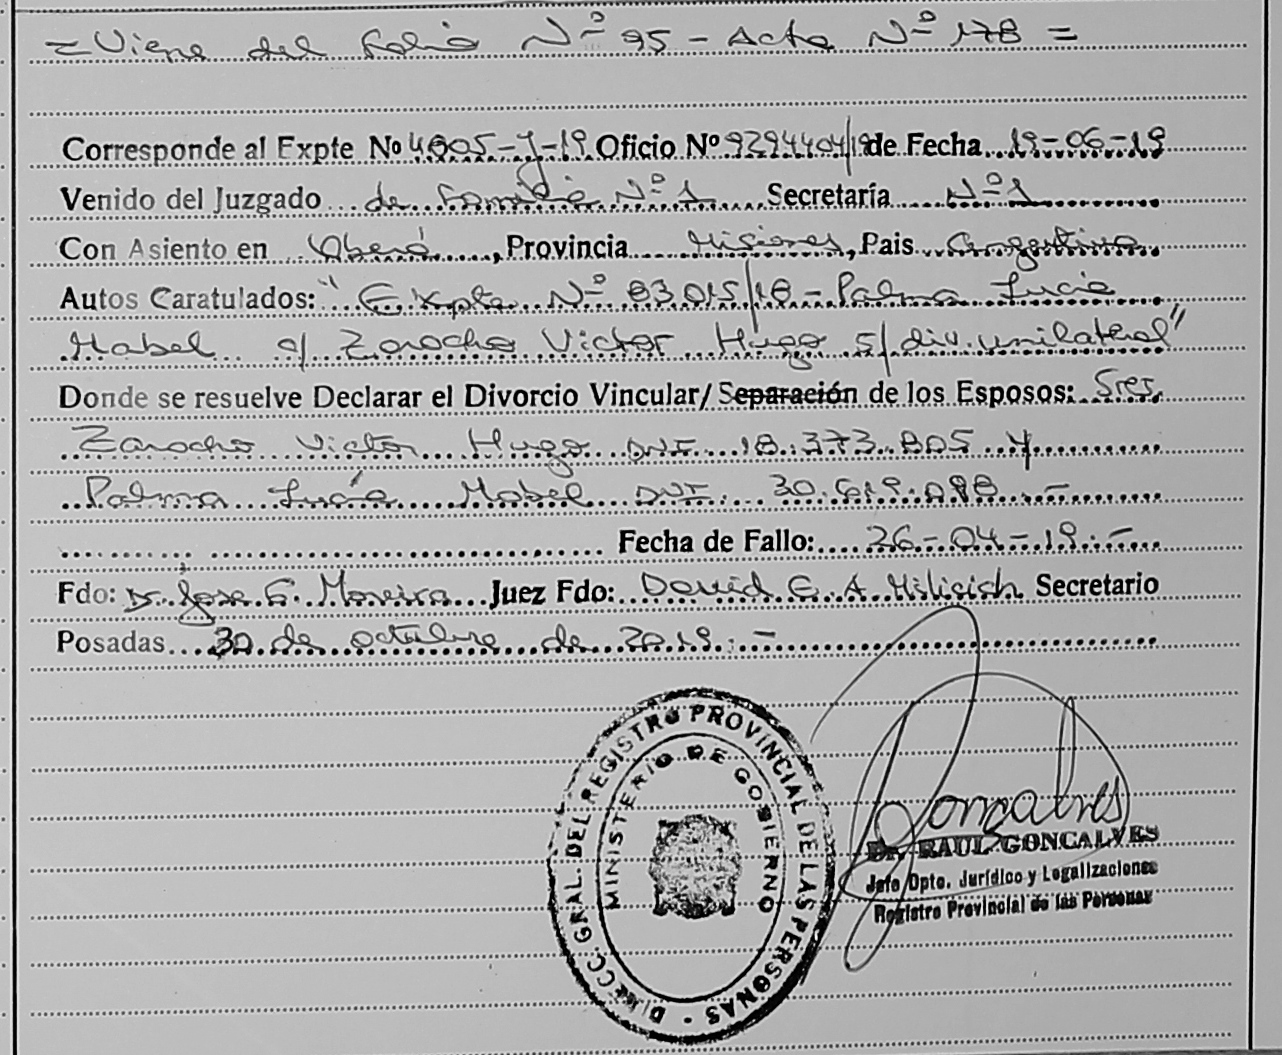 =Viene del folio Nº 95 - Acta Nº 178 =
Corresponde al Expte Nº 4005-J-19 Oficio Nº 9294404/19 de Fecha 19-06-19
Venido del Juzgado de Familia Nº 1 Secretaría Nº 1
Con Asiento en Oberá, Provincia Misiones, Pais Argentina.
Autos Caratulados: "Expte Nº 83015/18 - Palma Lucía
Mabel c/ Zaracho Victor Hugo s/ div. unilateral"
Donde se resuelve Declarar el Divorcio Vincular/ Separación de los Esposos: Sres.
Zaracho Victor Hugo DNI 18.373.805 y
Palma Lucía Mabel DNI 30.619.098.-
Fecha de Fallo: 26-04-19.-
Fdo: Dr. Jose G. Moreira Juez Fdo: David E. A. Milicich Secretario
Posadas 30 de octubre de 2019.-
DIRECC. GRAL. DEL REGISTRO PROVINCIAL DE LAS PERSONAS -
MINISTERIO DE GOBIERNO
Goncalves
Dr. RAUL GONCALVES
Jefe Dpto. Jurídico y Legalizaciones
Registro Provincial de las Personas